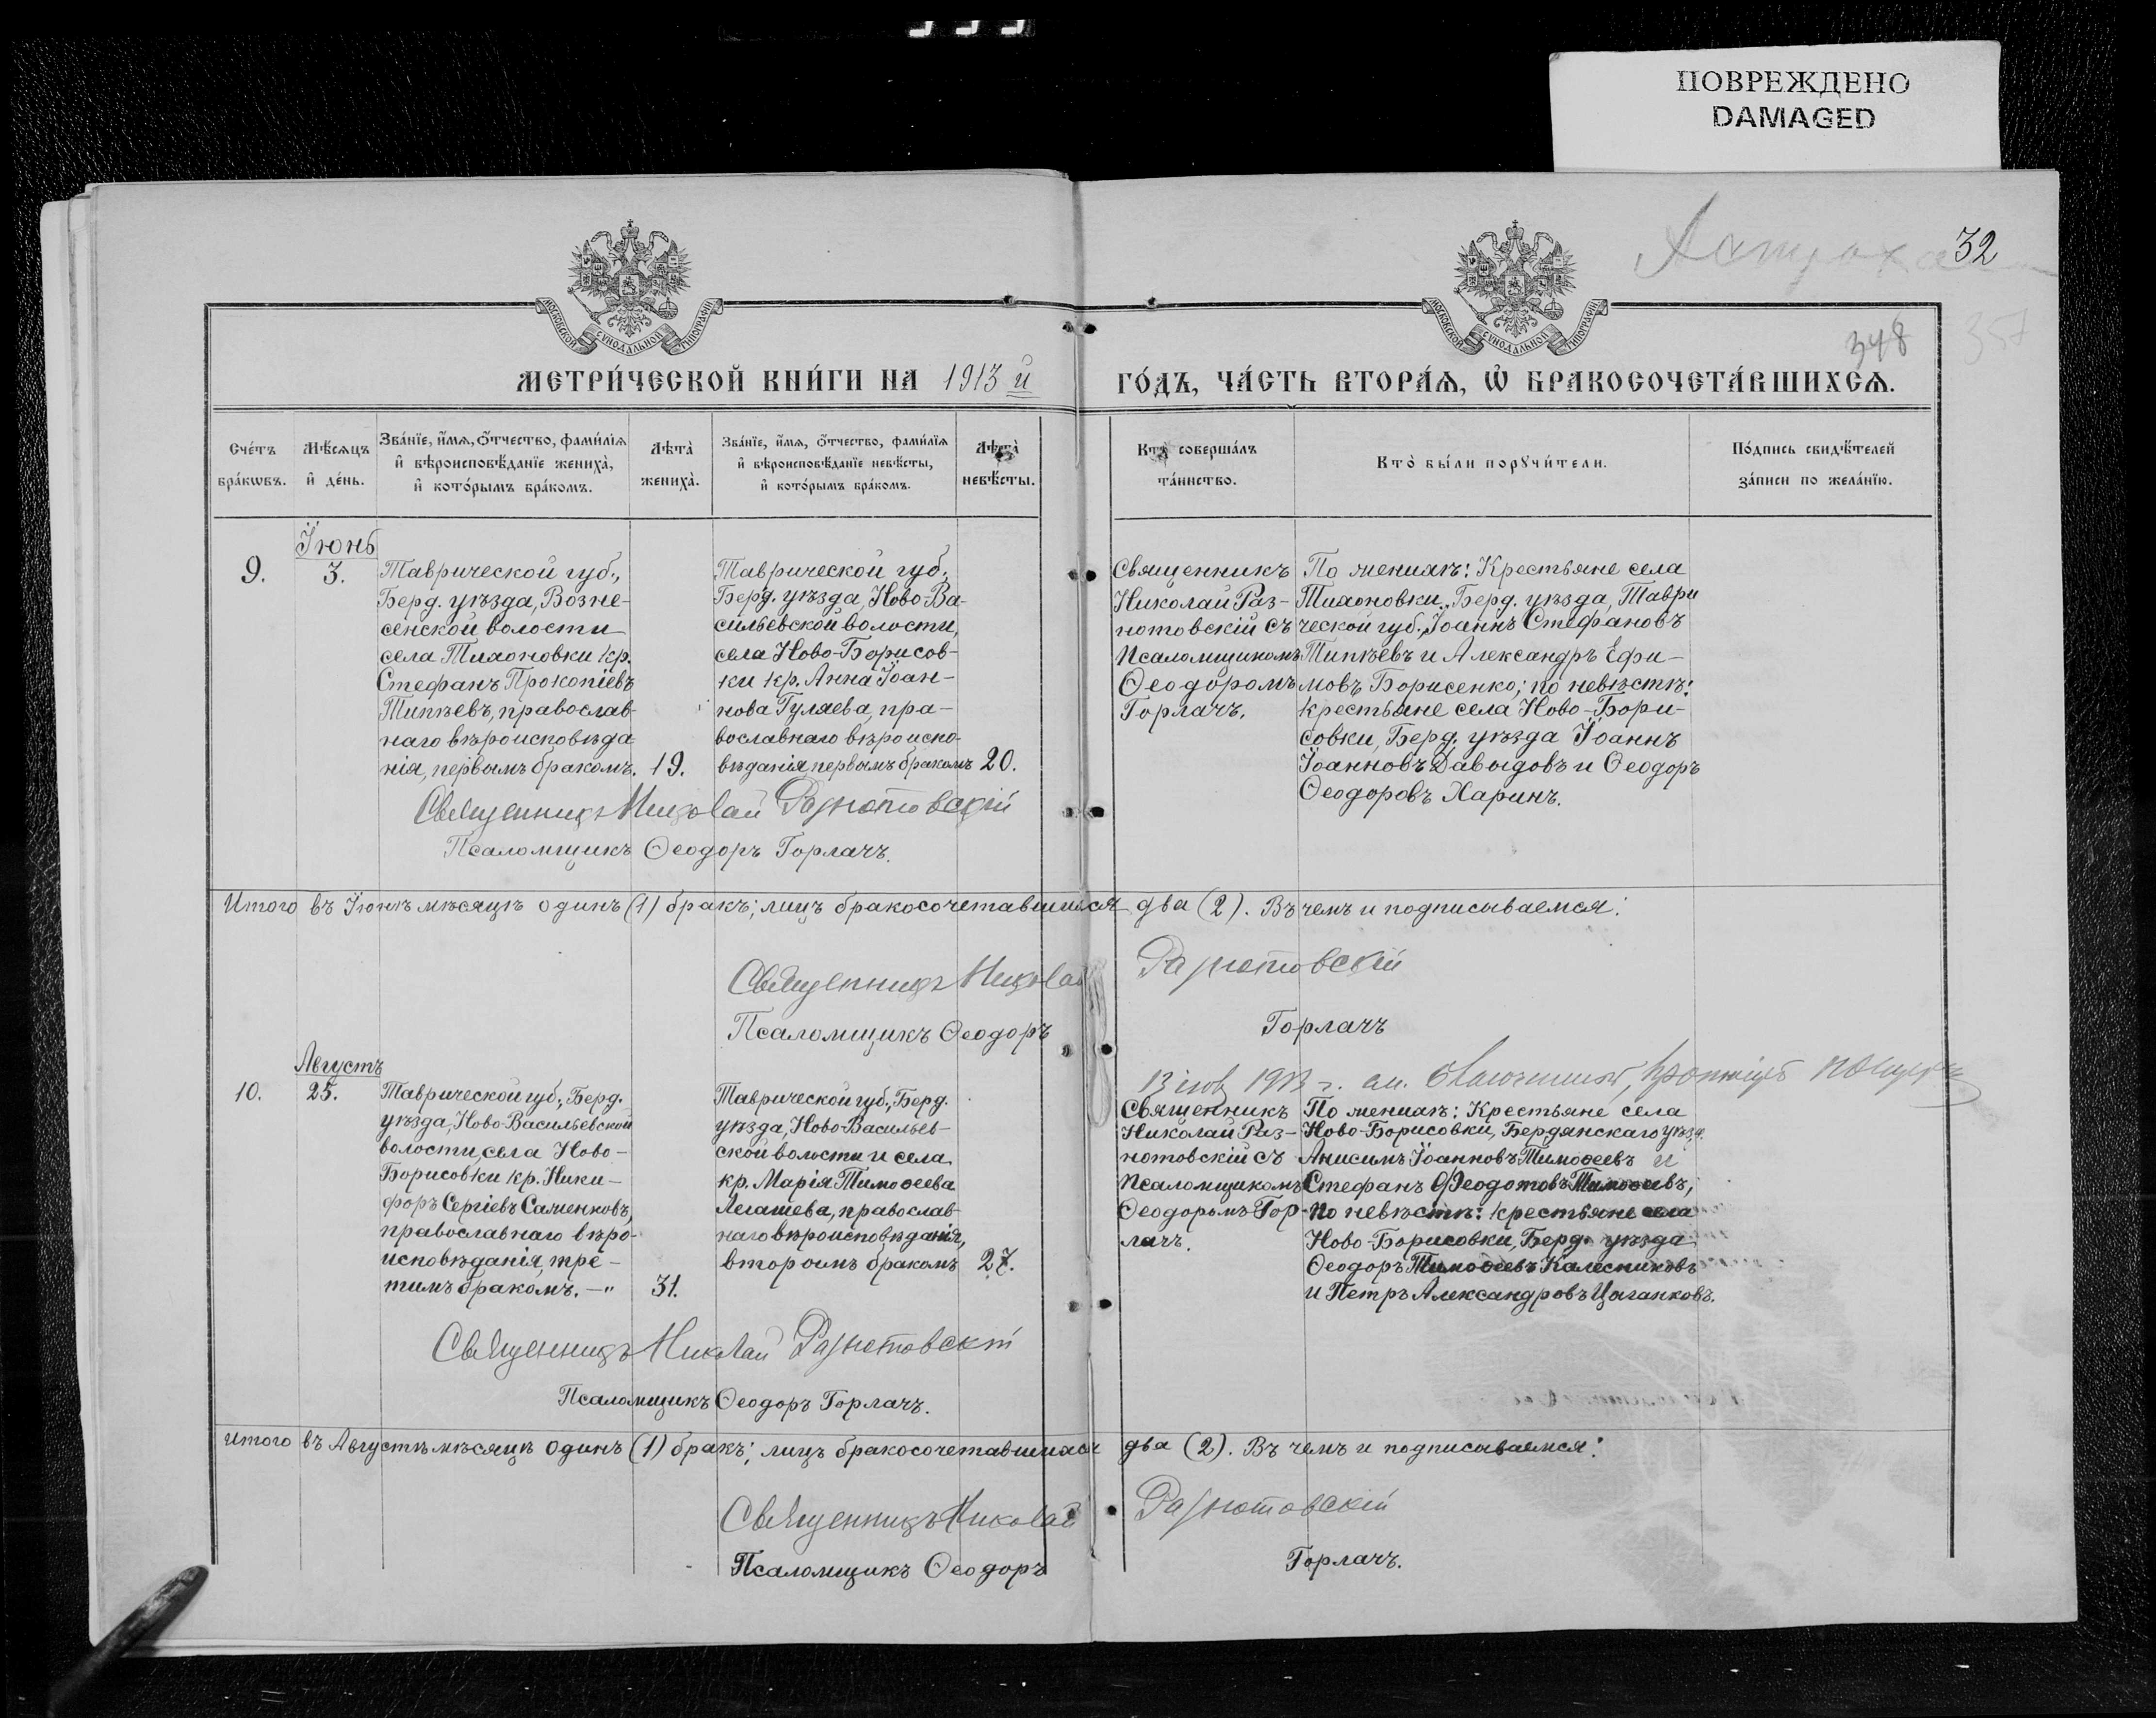 ПОВРЕЖДЕНО
DAMAGED
32
348
МОСКОВСКОЙ СѴНОДАЛЬНОЙ ТИПОГРАФІИ
МОСКОВСКОЙ СѴНОДАЛЬНОЙ ТИПОГРАФІИ
МЕТРИ́ЧЕСКОЙ КНИ́ГИ НА 1913 й ГО́ДЪ, ЧА́СТЬ ВТОРА́Ѧ, Ѽ БРАКОСОЧЕТА́ВШИХСѦ.
Сче́тъ
бра́кѡвъ.
Мѣ́сѧцъ
и҆ де́нь.
Зва́нїе, и҆́мѧ, ѻ҆́тчество, фами́лїѧ
и҆ вѣроисповѣ́данїе жениха̀,
и҆ кото́рымъ бра́комъ.
Лѣта̀
жениха̀.
Зва́нїе, и҆́мѧ, ѻ҆́тчество, фами́лїѧ
и҆ вѣроисповѣ́данїе невѣ́сты,
и҆ кото́рымъ бра́комъ.
Лѣта̀
невѣ́сты.
Кто̀ соверша́лъ
та́инство.
Кто̀ бы́ли порꙋчи́тели.
По́дпись свидѣ́телей
за́писи по жела́нїю.
Іюнь
9.
3.
Таврической губ.,
Берд. уѣзда, Возне-
сенской волости
села Тихоновки кр.
Стефанъ Прокопіевъ
Типѣевъ, православ-
наго вѣроисповѣда
нія, первымъ бракомъ.
19.
Таврической губ.,
Берд. уѣзда, Ново-Ва-
сильевской волости,
села Ново-Борисов-
ки кр. Анна Іоан-
нова Гуляева, пра-
вославнаго вѣроиспо-
вѣданія, первымъ бракомъ
20.
Священникъ
Николай Раз-
нотовскій съ
псаломщикомъ
Ѳеодоромъ
Горлачъ.
По женихѣ: Крестьяне села
Тихоновки, Берд. уѣзда, Таври
ческой губ. Іоаннъ Стефановъ
Типѣевъ и Александръ Ефи-
мовъ Борисенко; по невѣстѣ:
крестьяне села Ново-Бори-
совки, Берд. уѣзда Іоаннъ
Іоанновъ Давыдовъ и Ѳеодоръ
Ѳеодоровъ Харинъ.
Священникъ Николай Разнотовскій
Псаломщикъ Ѳеодоръ Горлачъ.
Итого въ Іюнѣ мѣсяцѣ одинъ (1) бракъ; лицъ бракосочетавшихся два (2). Въ чемъ и подписываемся:
Священникъ Николай Разнотовскій
Псаломщикъ Ѳеодоръ Горлачъ
1913 г.
Августъ
10.
25.
Таврической губ., Берд.
уѣзда, Ново-Васильевской
волости, села Ново-
Борисовки кр. Ники-
форъ Сергіевъ Саменковъ,
православнаго вѣро-
исповѣданія, тре-
тимъ бракомъ. — "
31.
Таврической губ., Берд.
уѣзда, Ново-Васильев-
ской волости и села
кр. Марія Тимоѳеева
Легашева, православ-
наго вѣроисповѣданія,
вторымъ бракомъ
27.
Священникъ
Николай Раз-
нотовскій съ
псаломщикомъ
Ѳеодоромъ Гор-
лачъ.
По женихѣ: Крестьяне села
Ново-Борисовки, Бердянскаго уѣзд.
Анисимъ Іоанновъ Тимоѳеевъ и
Стефанъ Ѳеодотовъ Тимоѳеевъ;
по невѣстѣ: крестьяне села
Ново-Борисовки, Берд. уѣзда
Ѳеодоръ Тимоѳеевъ Калесниковъ
и Петръ Александровъ Цыганковъ.
Священникъ Николай Разнотовскій
Псаломщикъ Ѳеодоръ Горлачъ.
Итого въ Августѣ мѣсяцѣ одинъ (1) бракъ; лицъ бракосочетавшихся два (2). Въ чемъ и подписываемся:
Священникъ Николай Разнотовскій
Псаломщикъ Ѳеодоръ Горлачъ.